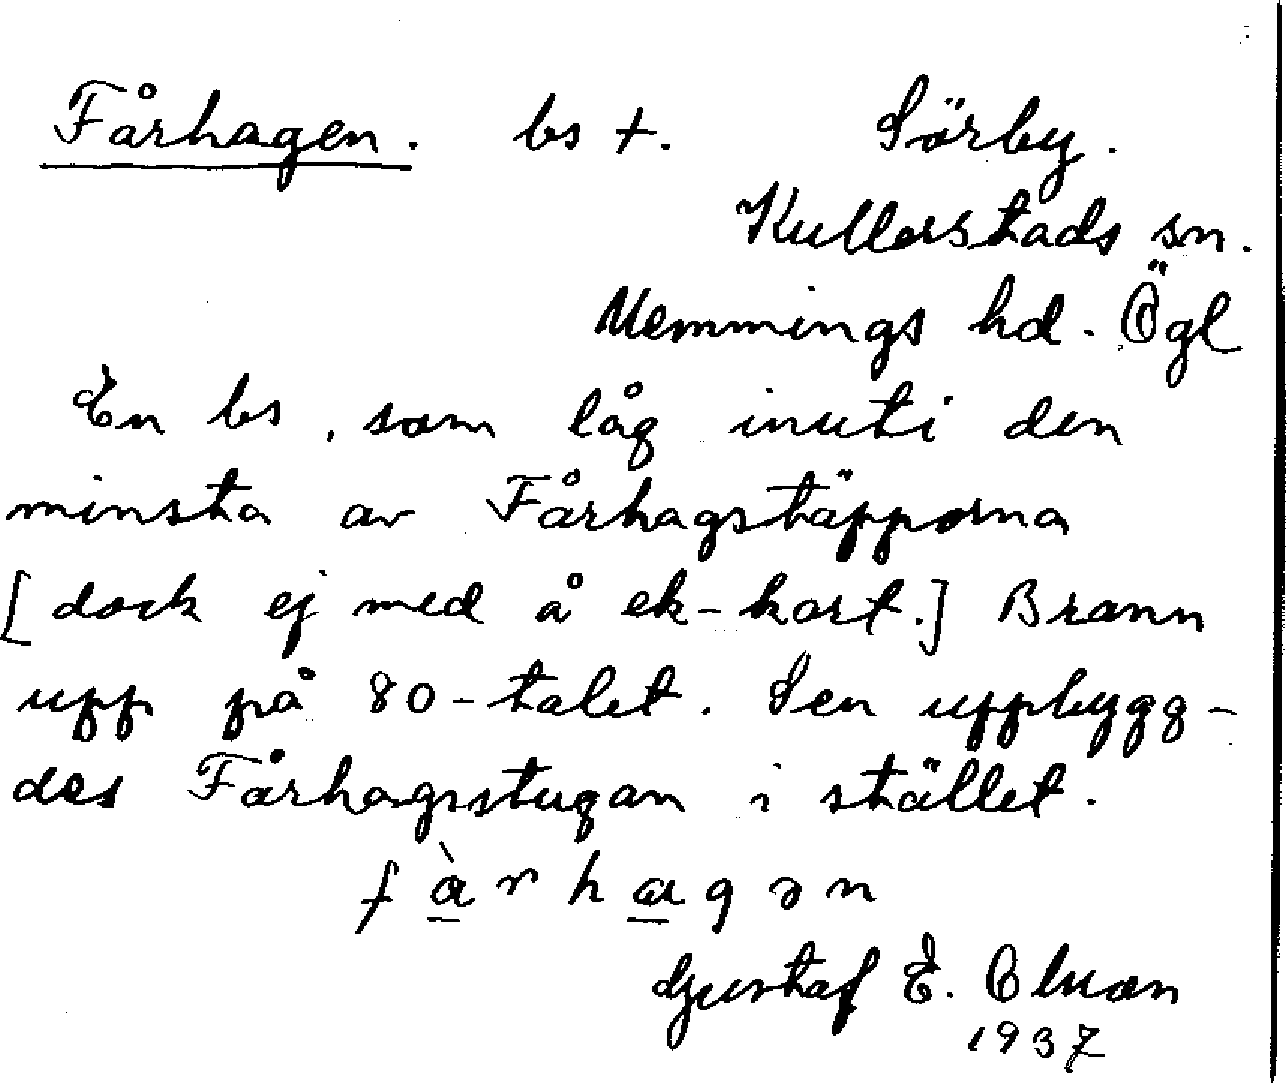 Fårhagen. bs +. Sörby.
Kullerstads sn.
Memmings hd. Ögl
En bs, som låg inuti den
minsta av Fårhagstäpporna
[dock ej med å ek-kart.] Brann
upp på 80-talet. Sen uppbygg-
des Fårhagsstugan i stället.
fà̱rha̱gən
Gustaf E.
1937